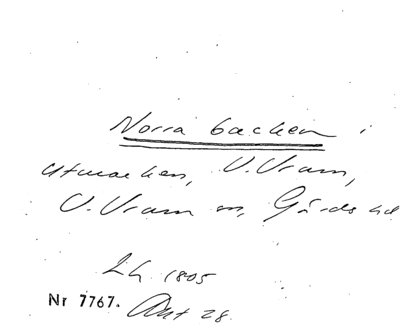 Norra backen i
utmarken, V. Vram,
V. Vram sn, Gärds hd
Lh 1805
Nr 7767. Akt 28